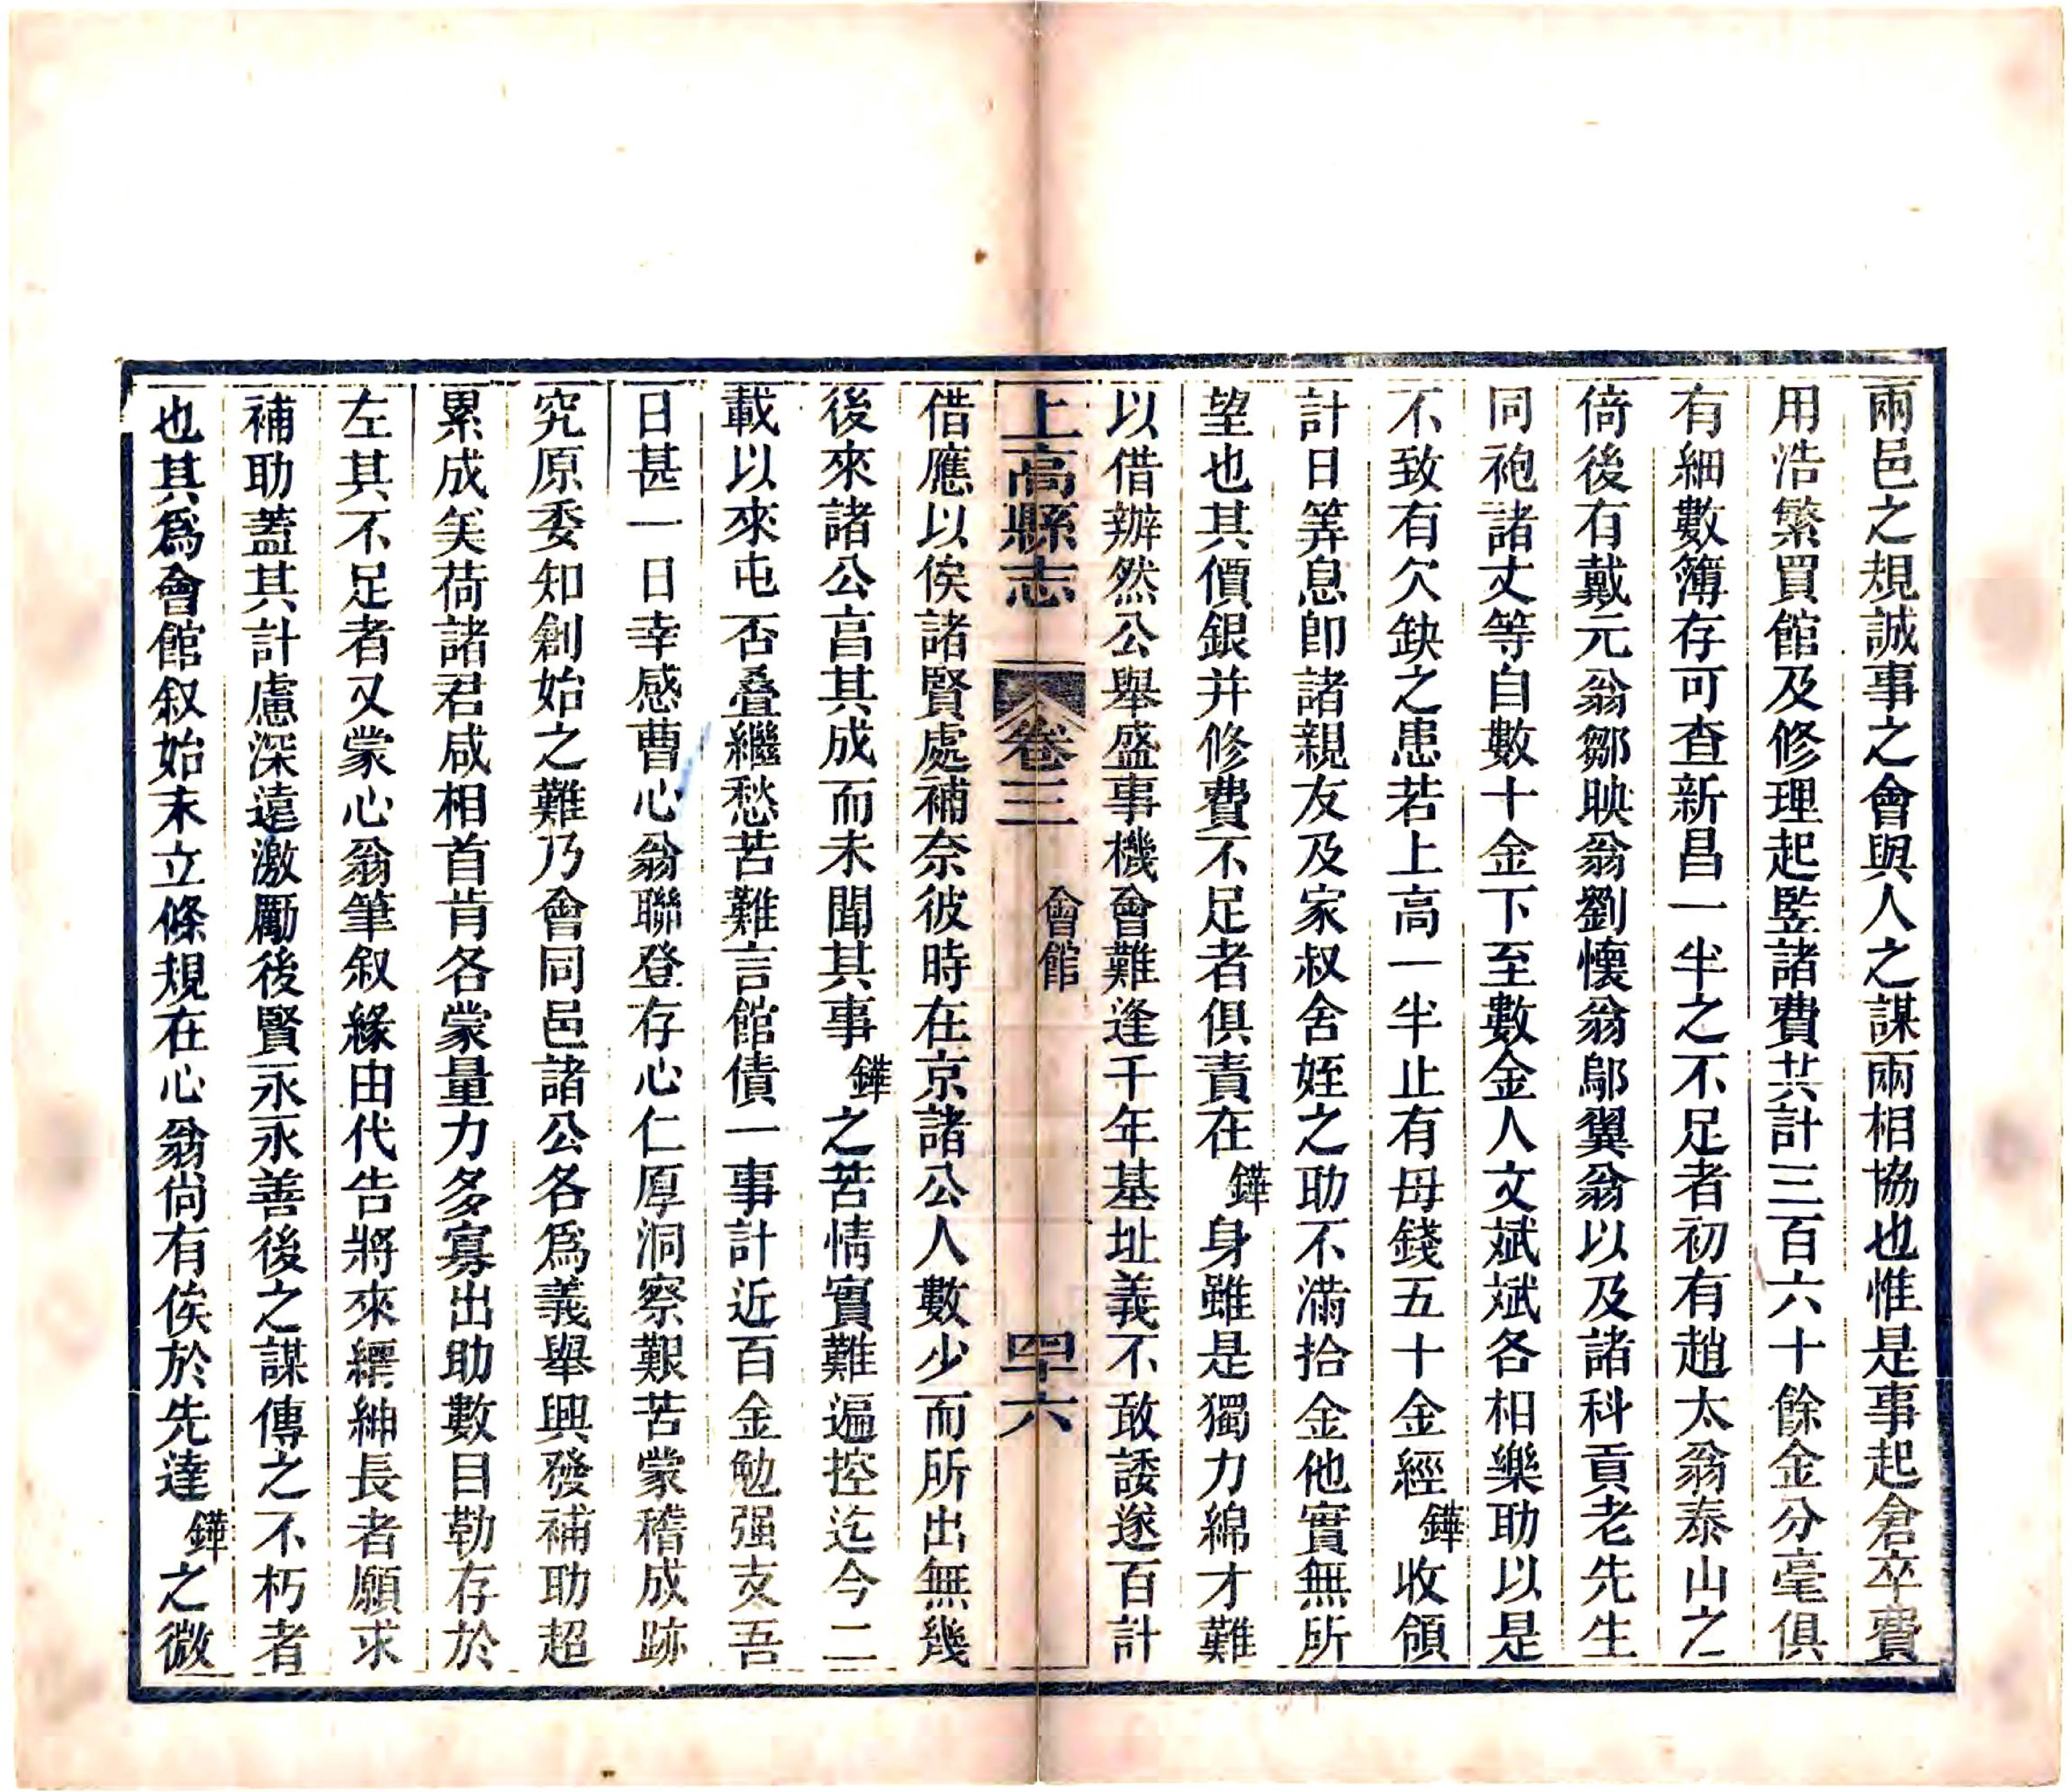 兩邑之規誠事之會與人之謀兩相協也惟是事起倉卒費
用浩繁買館及修理起監諸費共計三百六十餘金分毫俱
有細數簿存可查新昌一半之不足者初有趙太翁泰山之
倚後有戴元翁鄒映翁劉懷翁鄔翼翁以及諸科貢老先生
同袍諸丈等自數十金下至數金人文斌斌各相樂助以是
不致有欠缺之患若上高一半止有母錢五十金經鏵收領
計日筭息卽諸親友及家叔舍姪之助不滿拾金他實無所
望也其價銀并修費不足者俱責在鏵身雖是獨力綿才難
以借辦然公舉盛事機會難逢千年基址義不敢諉遂百計
上高縣志 卷三 會館 四十六
借應以俟諸賢處補奈彼時在京諸公人數少而所出無幾
後來諸公言其成而未聞其事鏵之苦情實難遍控迄今二
載以來屯否叠繼愁苦難言館債一事計近百金勉强支吾
日甚一日幸感曹心翁聯登存心仁厚洞察艱苦蒙稽成跡
究原委知創始之難乃會同邑諸公各爲義舉興發補助超
累成矣荷諸君咸相首肯各蒙量力多寡出助數目勒存於
左其不足者又蒙心翁筆叙緣由代告將來縉紳長者願求
補助蓋其計慮深遠激勵後賢永永善後之謀傳之不朽者
也其爲會館叙始末立條規在心翁尙有俟於先達鏵之微